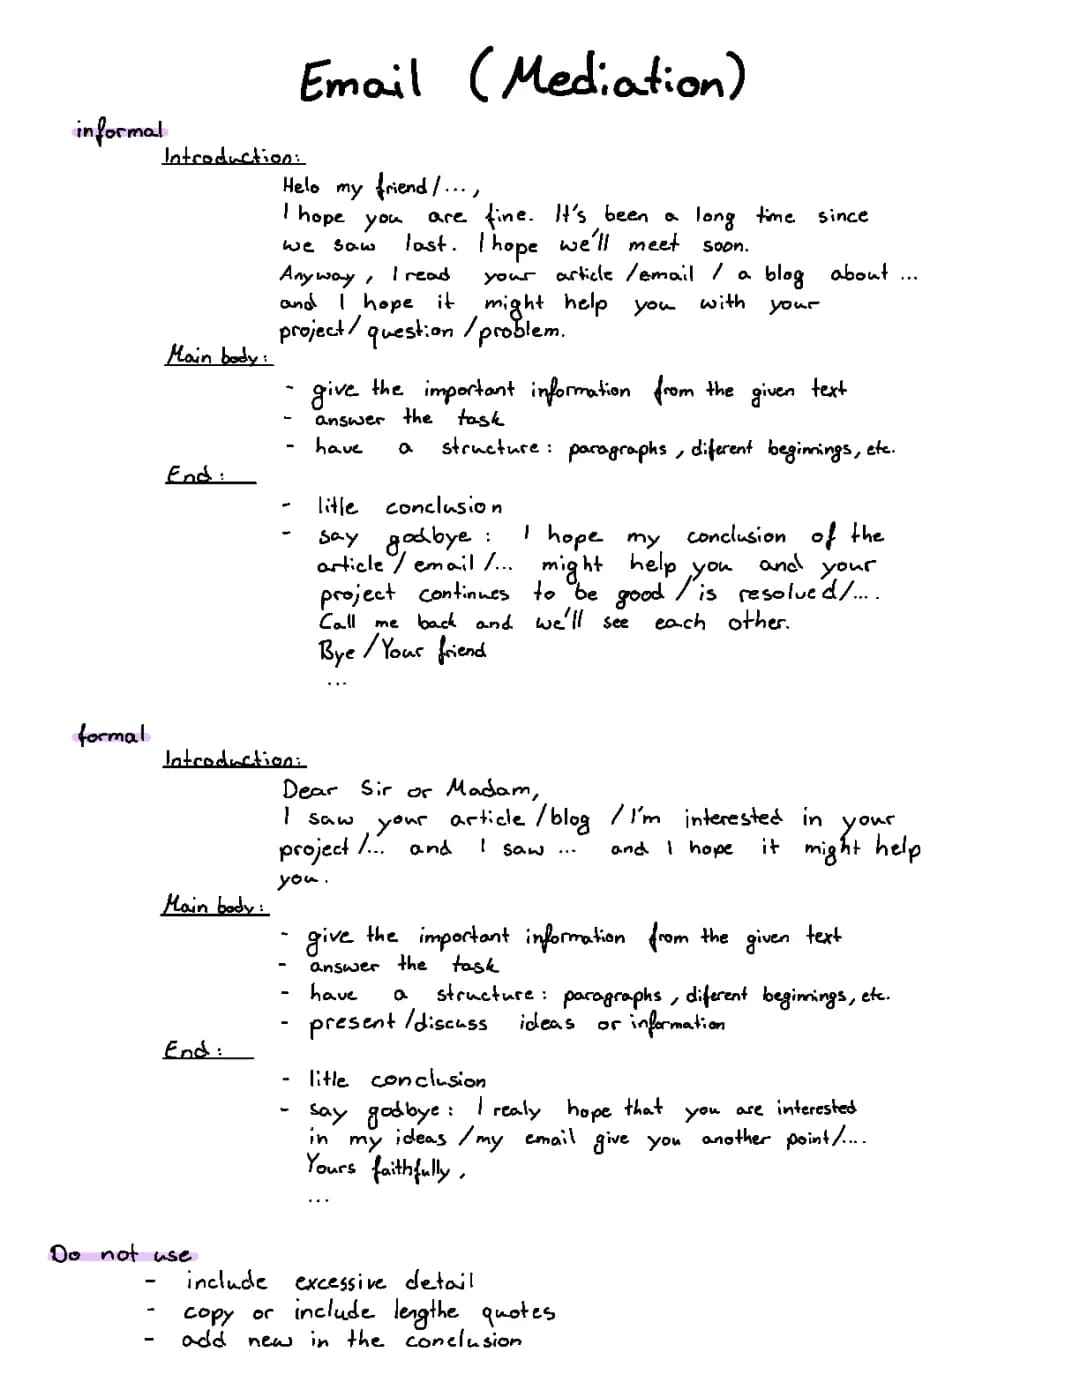 Email (Mediation)
informal
Introduction:
Helo my friend/...,
I hope you are fine. It's been a long time since
we saw last. I hope we'll meet soon.
Anyway, I read your article/email / a blog about ...
and I hope it might help you with your
project/question/problem.
Main body:
- give the important information from the given text
- answer the task
- have a structure: paragraphs, diferent beginnings, etc.
End:
- litle conclusion
- say godbye: I hope my conclusion of the
article/email/... might help you and your
project continues to be good/is resolved/....
Call me back and we'll see each other.
Bye/Your friend
...
formal
Introduction:
Dear Sir or Madam,
I saw your article/blog/I'm interested in your
project/... and I saw ... and I hope it might help
you.
Main body:
- give the important information from the given text
- answer the task
- have a structure: paragraphs, diferent beginnings, etc.
- present/discuss ideas or information
End:
- litle conclusion
- say godbye: I realy hope that you are interested
in my ideas/my email give you another point/....
Yours faithfully,
...
Do not use
- include excessive detail
- copy or include lengthe quotes
- add new in the conclusion